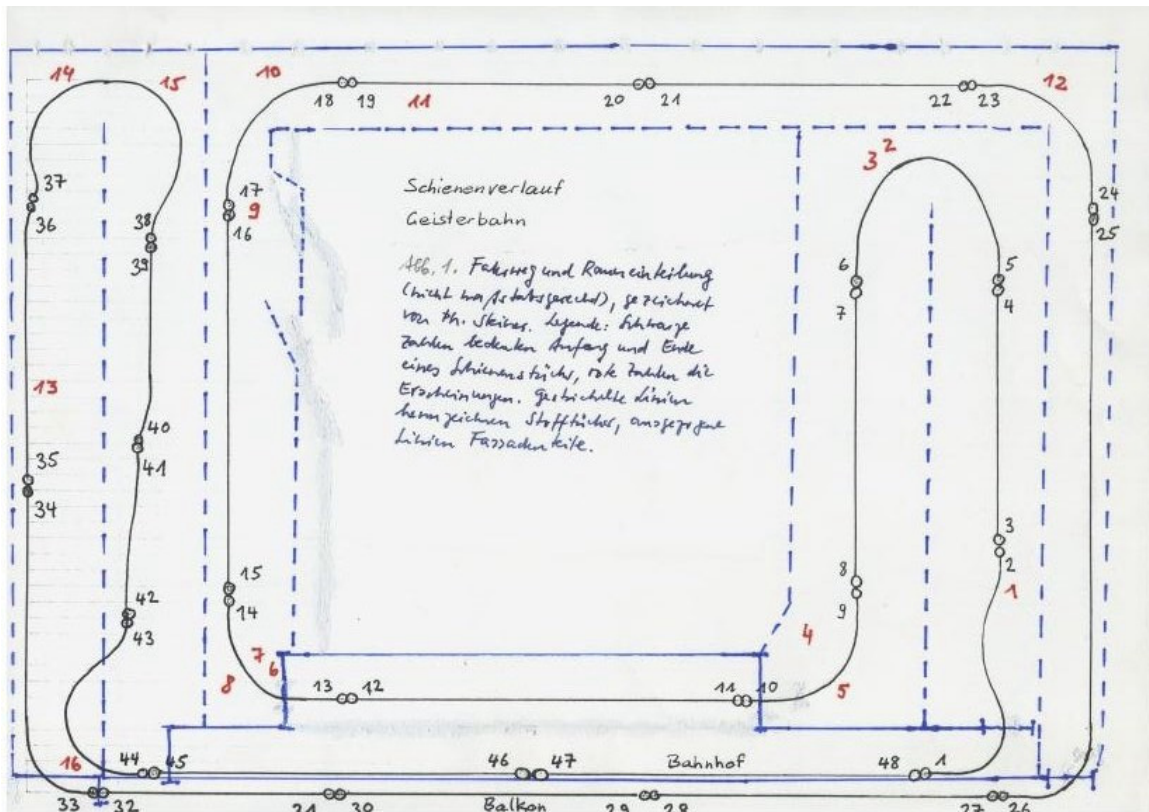 14 15 10 12
18 19 11 20 21 22 23
3 2
37 17 24
36 9 25
16
Schienenverlauf
Geisterbahn
38
39
6 5
7 4
Abb. 1. Fahrweg und Raumeinteilung
(nicht maßstabsgerecht), gezeichnet
von Th. Steiner. Legende: Schwarze
Zahlen bedeuten Anfang und Ende
eines Schienenstücks, rote Zahlen die
Erscheinungen. Gestrichelte Linien
kennzeichnen Stofftücher, ausgezogene
Linien Fassadenteile.
13
40
41
35
34
3
2
1
15 8
14 9
42
43
4
7 6
8 13 12 11 10 5
16 44 45 46 47 Bahnhof 48 1
33 32 31 30 Balkon 29 28 27 26